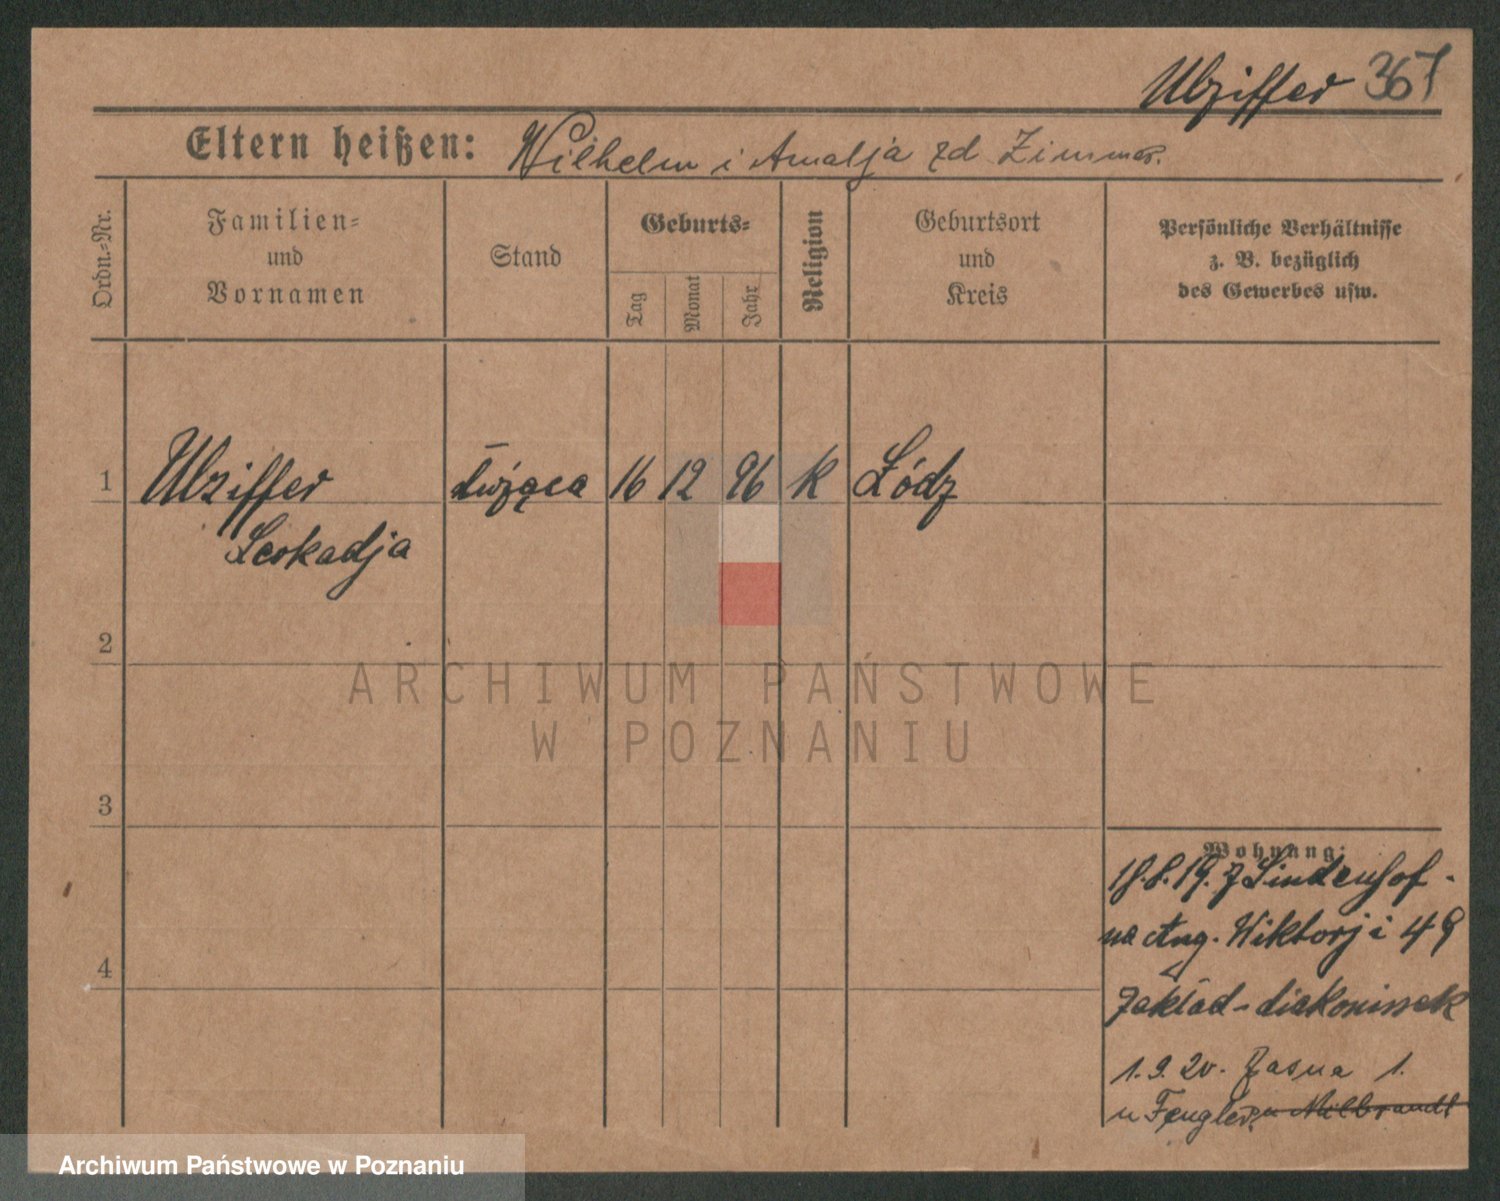 Ulziffer 367
Eltern heißen: Wilhelm i Amalja zd Zimmer.
Ordn.-Nr.
Familien-
und
Vornamen
Stand
Geburts-
Tag
Monat
Jahr
Religion
Geburtsort
und
Kreis
Persönliche Verhältnisse
z. B. bezüglich
des Gewerbes usw.
1 Ulziffer służąca 16 12 96 K Łódz
Leokadja
2
ARCHIWUM PAŃSTWOWE
W POZNANIU
3
Wohnung:
18.8.19. z Lindenhof -
na Aug. Wiktorji 49
4
Zakład - diakonissek
1.9.20. Jasna 1.
u Fengler, u Milbrandt
Archiwum Państwowe w Poznaniu